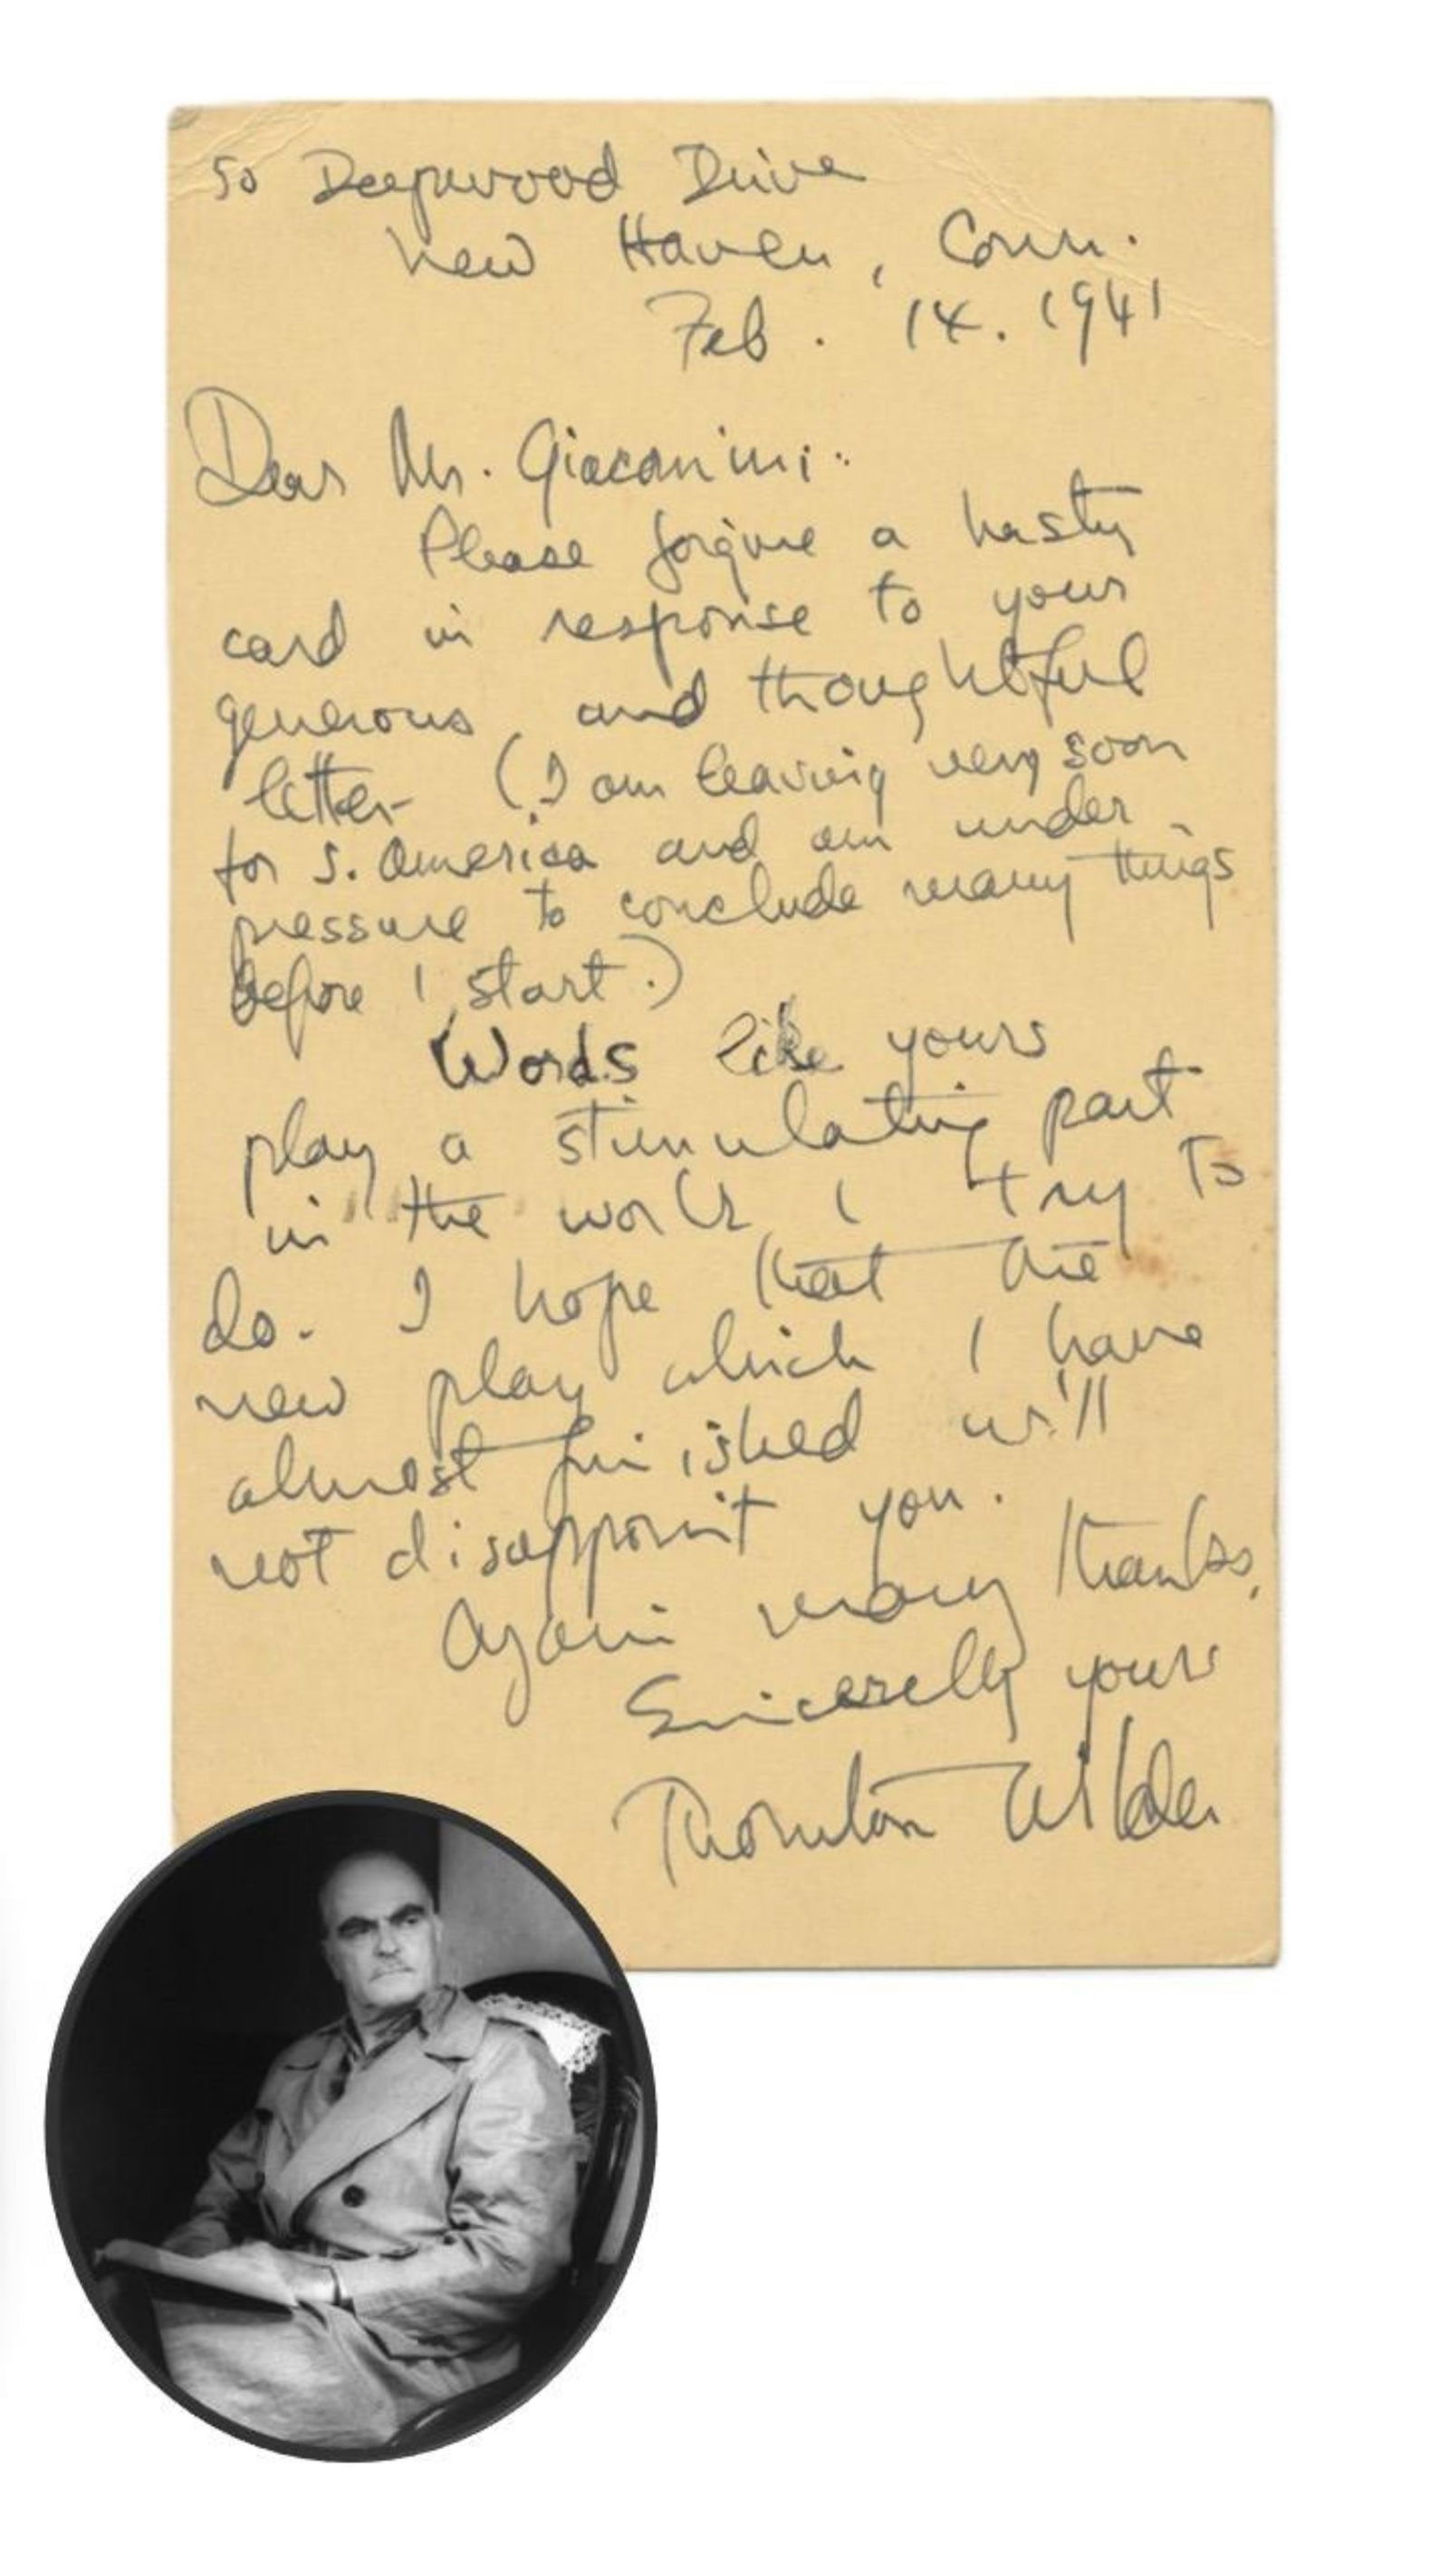 50 Deepwood Drive
New Haven, Conn.
Feb. 14. 1941
Dear Mr. Giacomini:
Please forgive a hasty
card in response to your
generous and thoughtful
letter (I am leaving very soon
for S. America and am under
pressure to conclude many things
before I start.)
Words like yours
play a stimulating part
in the work I try to
do. I hope that the
new play which I have
almost finished will
not disappoint you.
Again many thanks,
Sincerely yours
Thornton Wilder